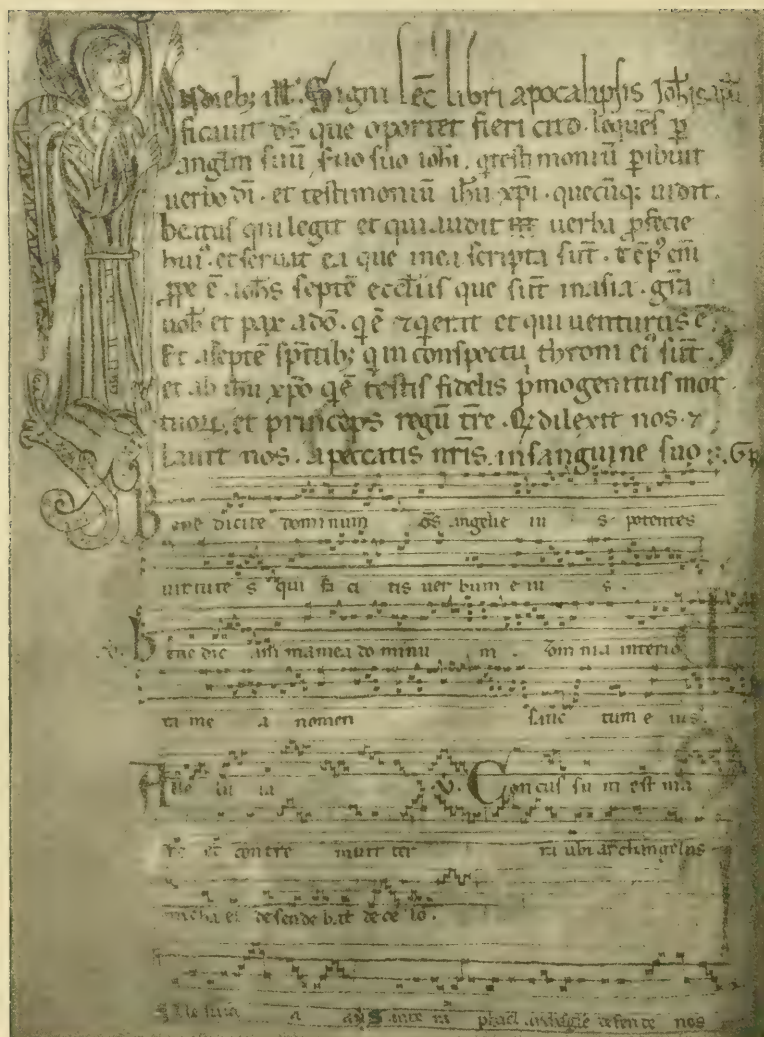 In dieb; ill'. Signi lec libri apocalipsis Ioh'is ap
ficauit ds que oportet fieri cito. loques p
anglm suu, suo suo iohi. q testimoniu pibuit
uerbo di. et testimoniu ihu xpi. quecuq; uidit.
beatus qui legit et qui audit uerba pfecie
hui'. et seruat ea que in ea scripta sut. teps eni
ppe e. iohs septe eccliis que sut in asia. gra
uob et pax ado. q e 7 q erit et qui uenturus e.
Et a septe spitib; q in conspectu throni ei' sut.
et ab ihu xpo q e testis fidelis pmogenitus mor
tuoru, et princeps regu tre. Q dilexit nos. 7
lauit nos. a peccatis nris in sanguine suo. Gr
Bene dicite dominum os angeli e iu s potentes
uirtute s qui fa ci tis uer bum e iu s.
V. Bene dic ani ma mea do minu m. om nia interio
ra me a nomen sanc tum e ius.
Alle lu ia V. Con cus su m est ma
re et con tre muit ter ra ubi archangelus
micha el de scende bat de ce lo.
Alle luia a San cte ra phael defende nos